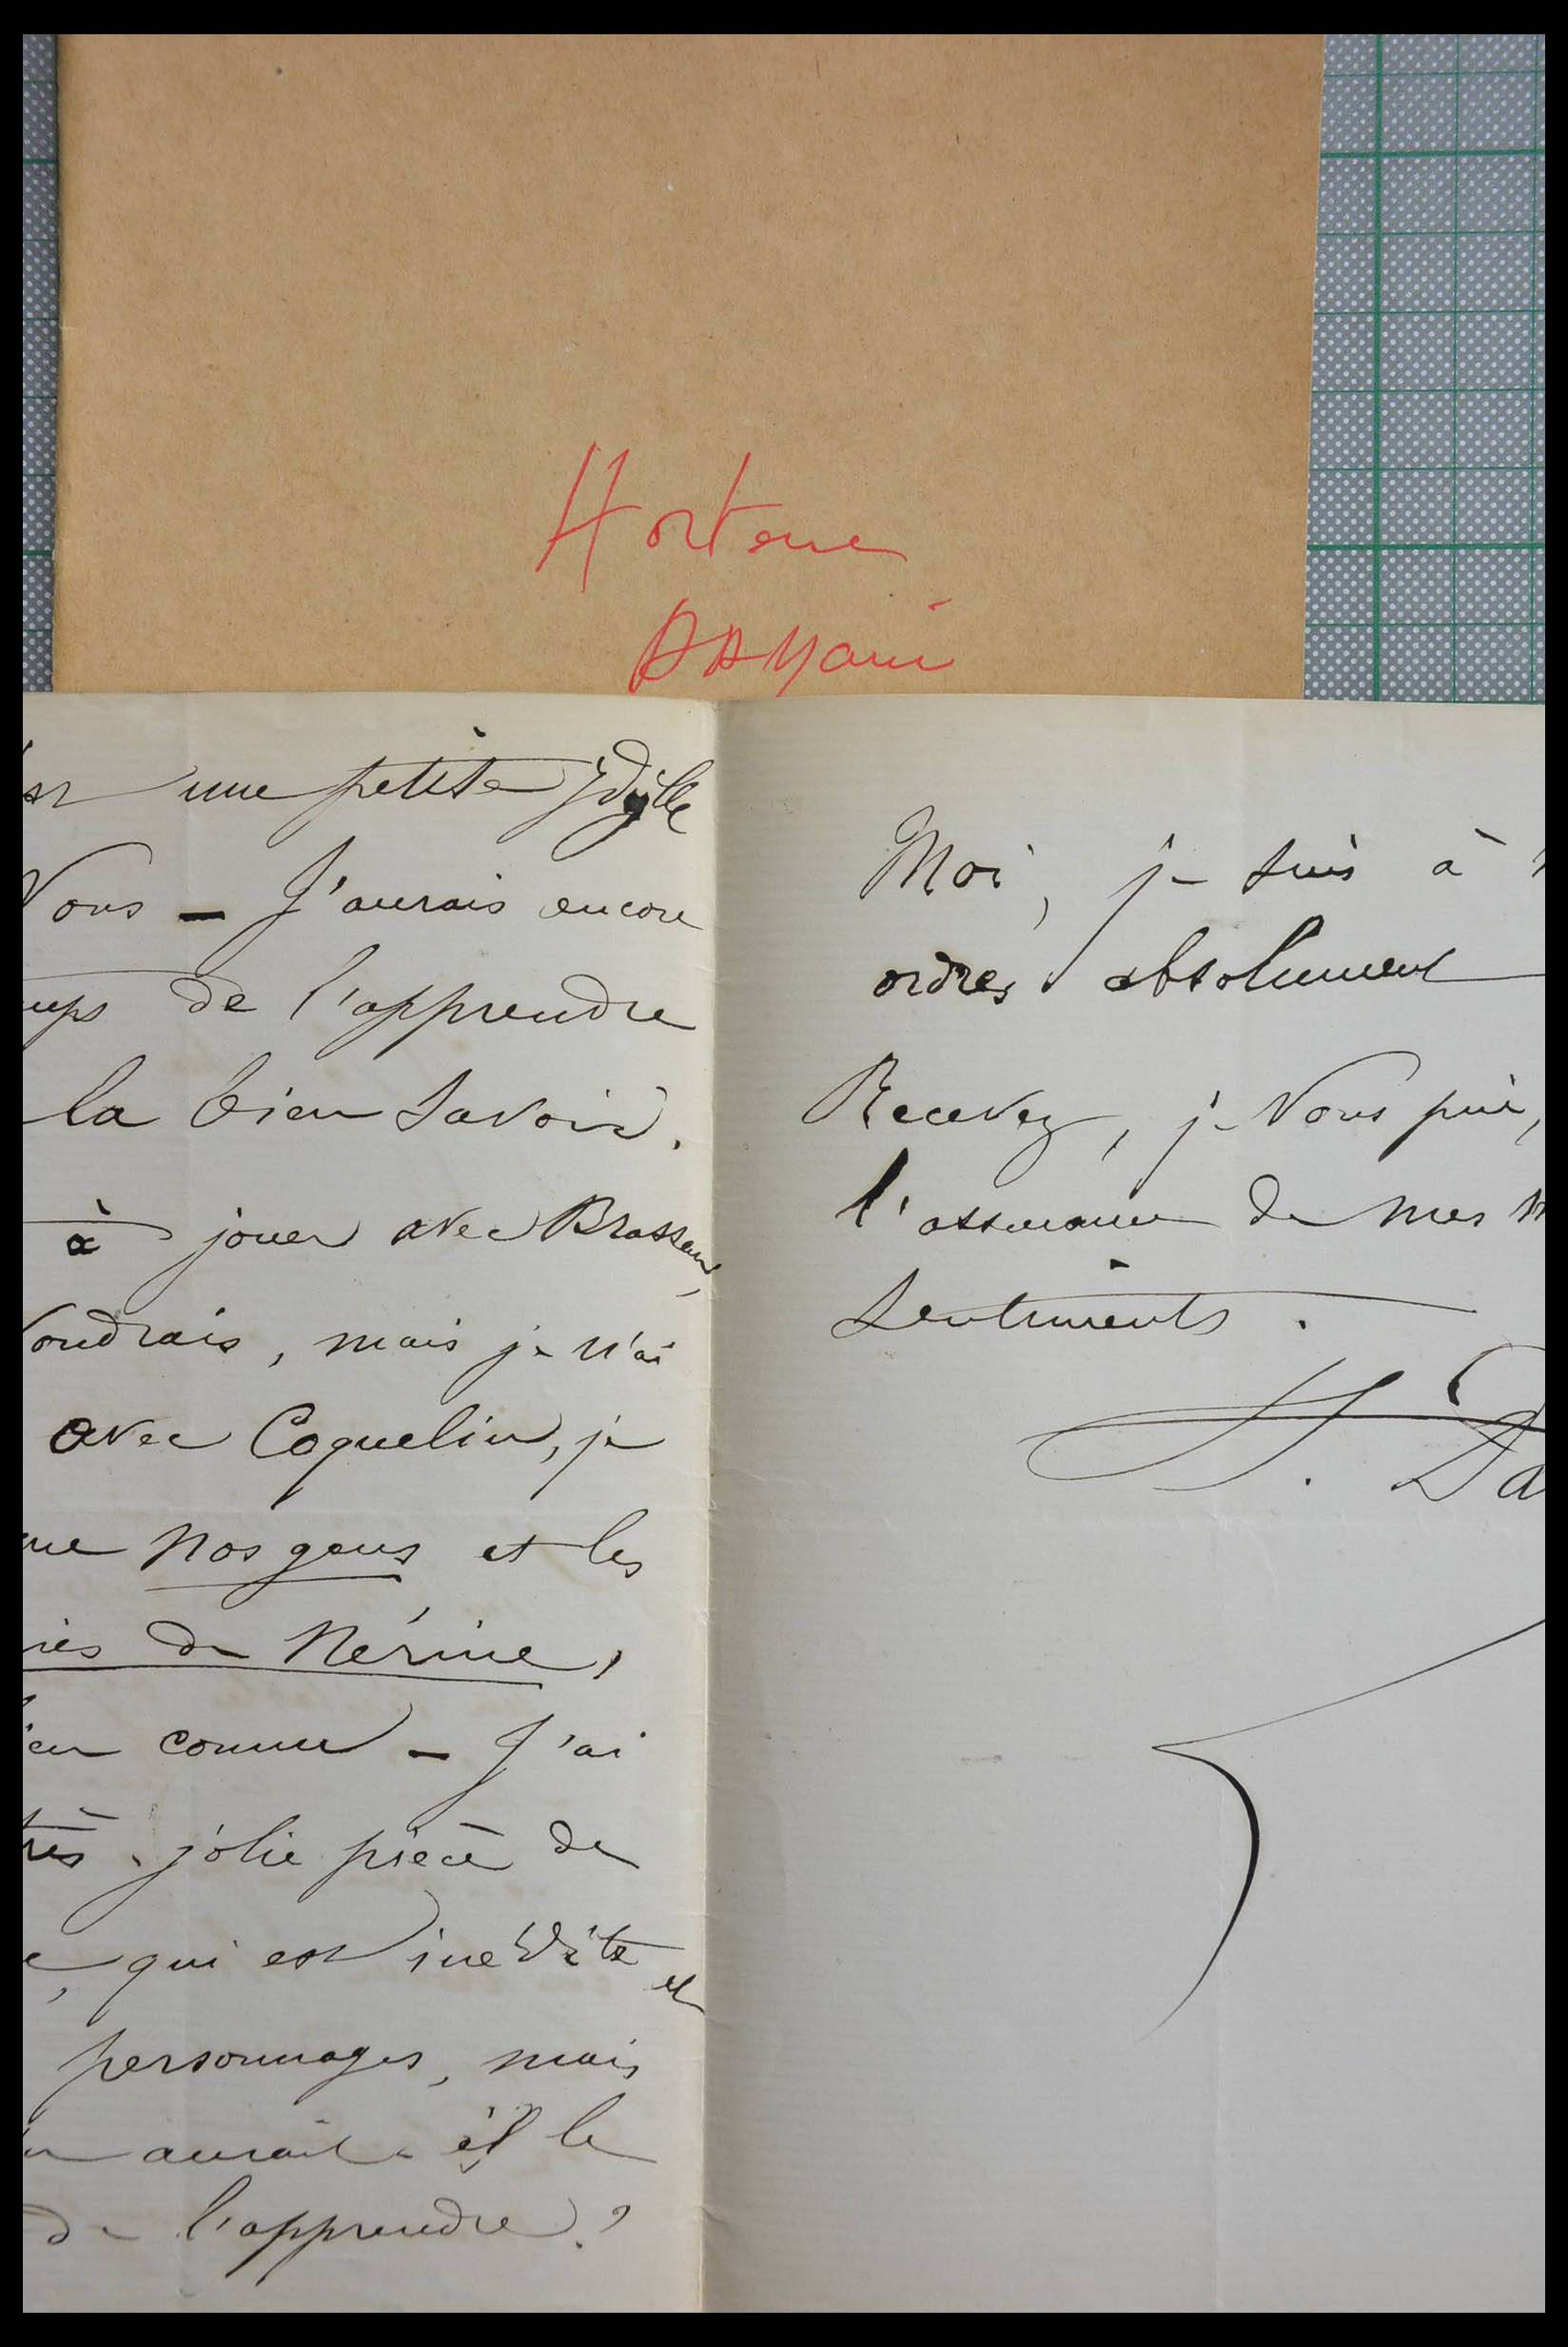 Hortense
DAMain
une petite Idylle
Vous — J'aurais encore
de l'apprendre
la bien savoir.
à jouer avec Brasseur,
Voudrais, mais je n'ai
avec Coquelin, je
nos gens et les
de Nérine,
connu — J'ai
très jolie pièce de
qui est inédite et
personnages, mais
aurait-il le
de l'apprendre ?
Moi, je suis à
ordres absolument
Recevez, je vous prie,
l'assurance de mes
sentiments.
H. Da